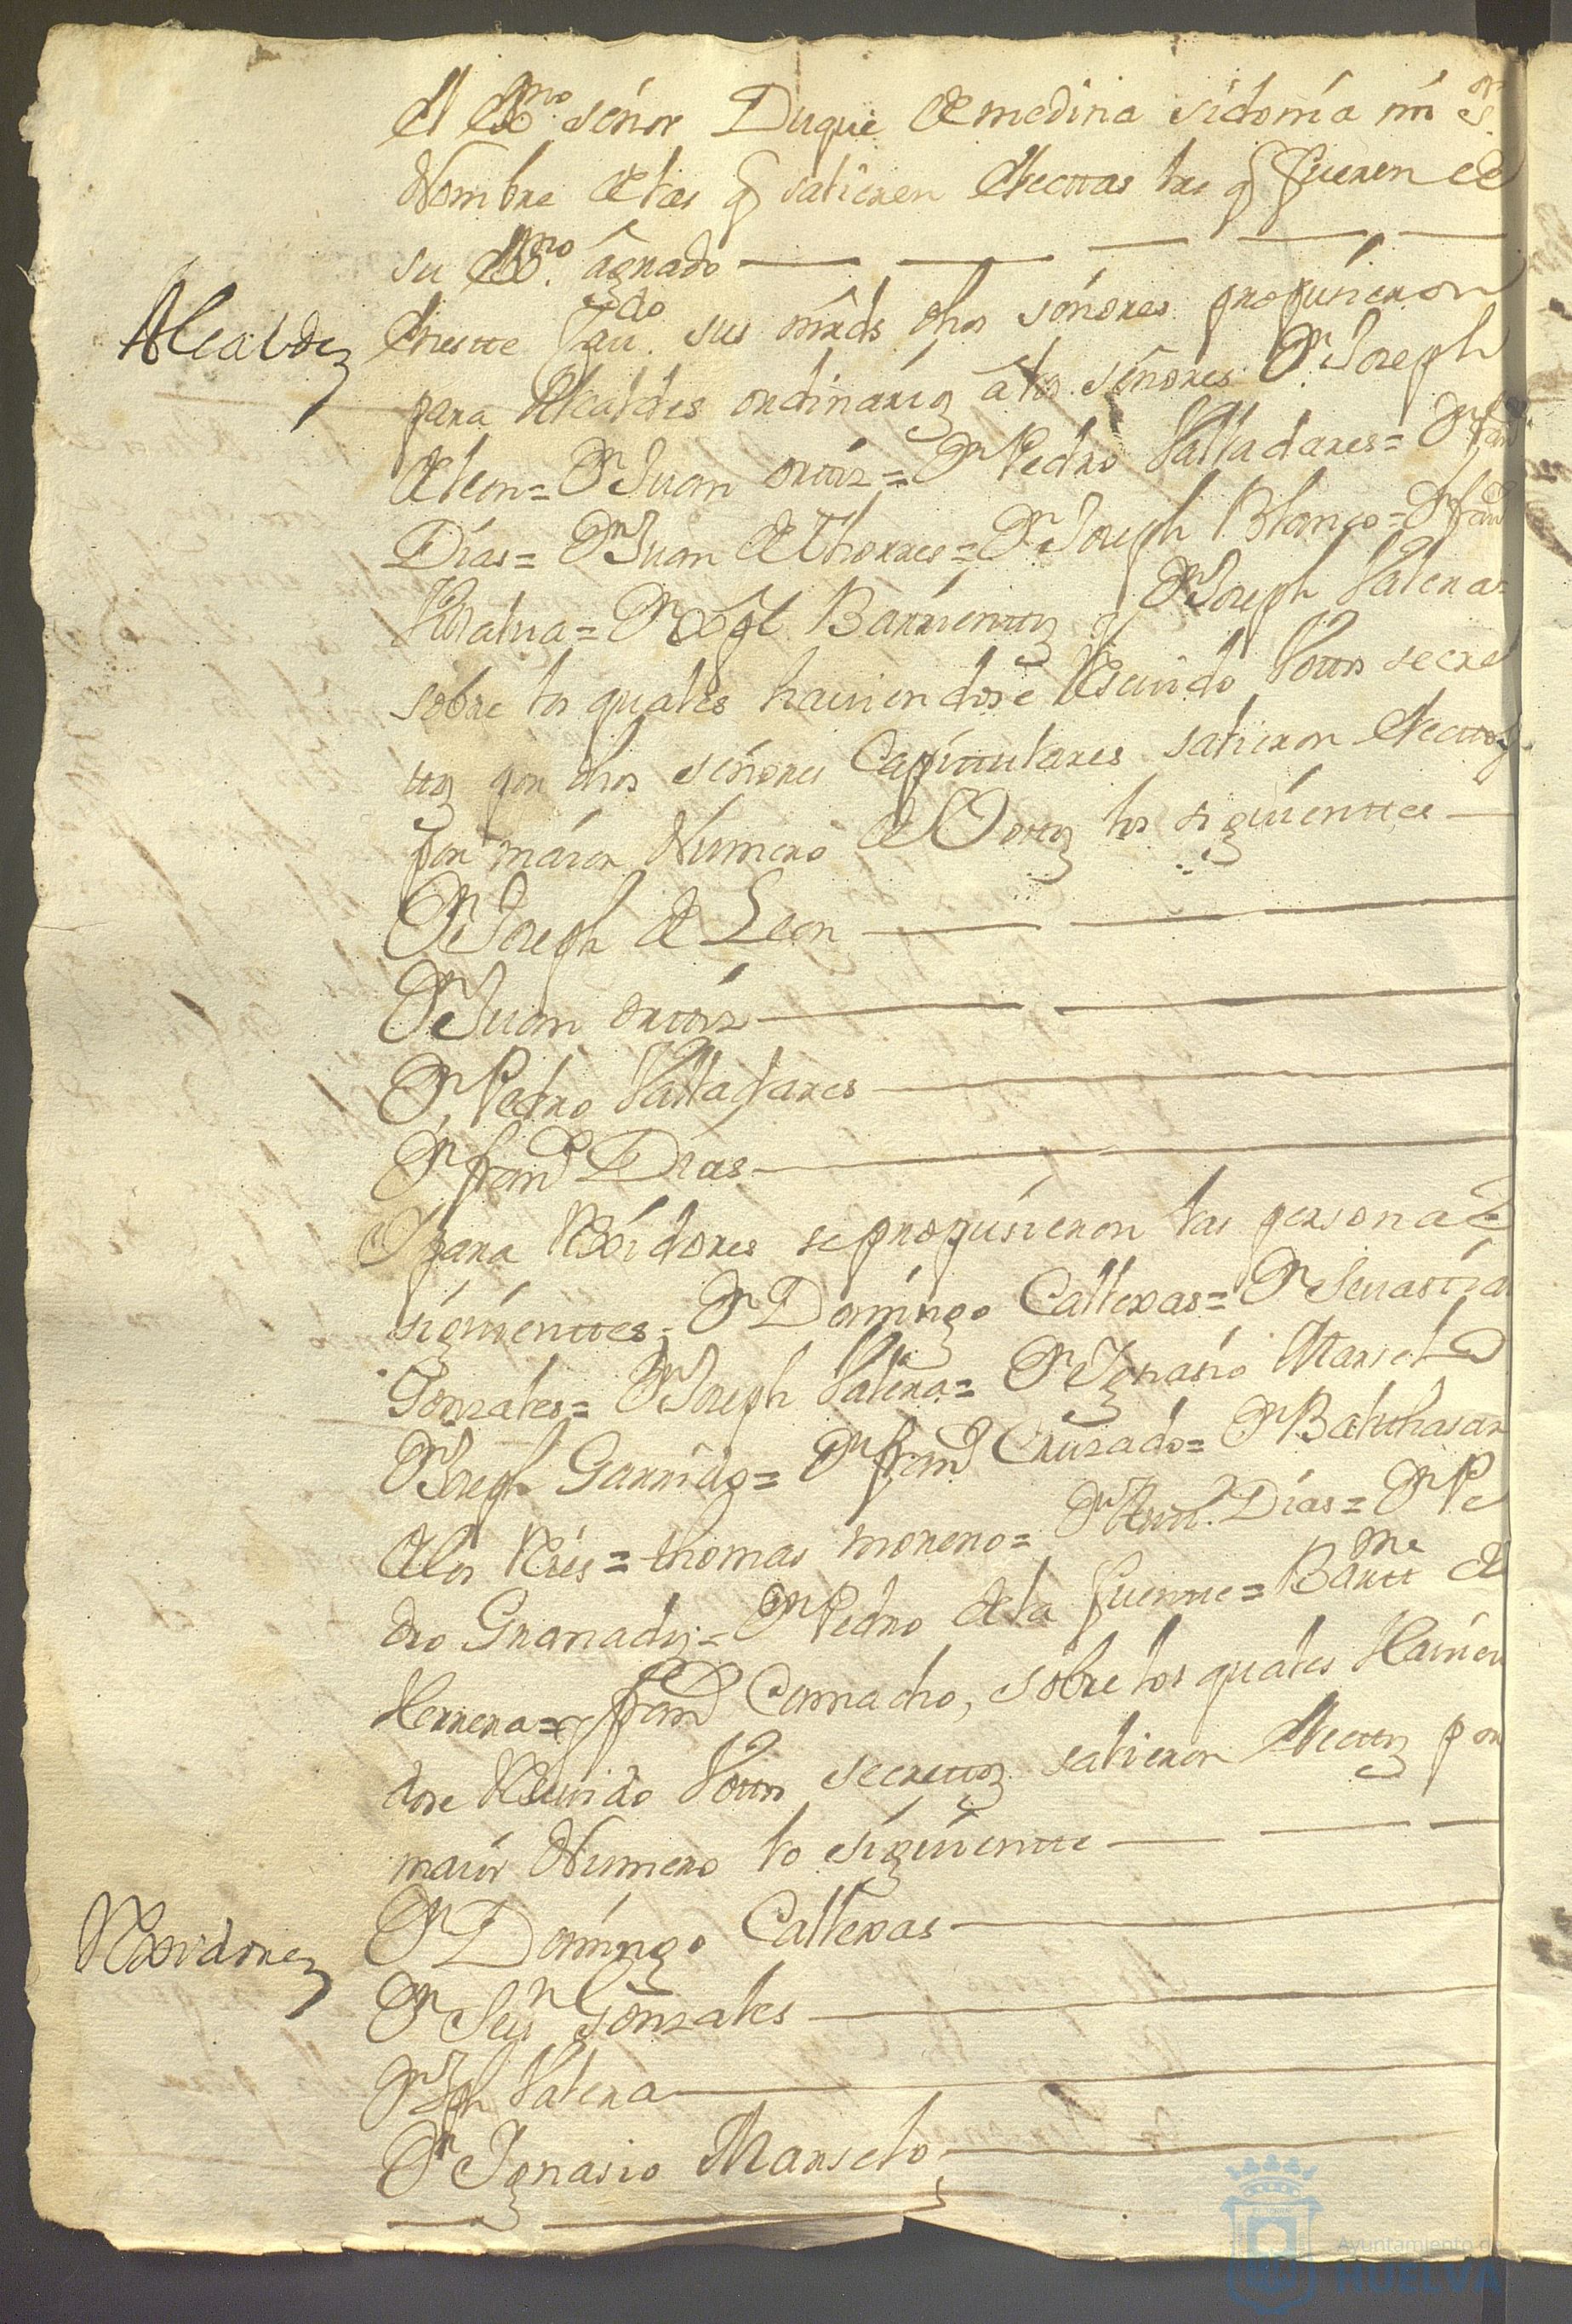 el Exmo señor Duque de medina sidonia mi sr
Nombre de las q salieren electtas las q fueren de
su Exmo. agrado
Alcaldes
en este Cau.do sus mrds dhos señores propusieron
para Alcaldes ordinarios a los señores Dn Joseph
de leon = Dn Juan orttiz = Dn Pedro Valladares = Dn franco
Dias = Dn Juan de Thorres = Dn Joseph Blanco = Dn franco
= Dn Barrienttos y Dn Joseph Valera =
sobre los quales hauiendose Reseuido Vottos secre
ttos por dhos señores Capittulares salieron electtos
por maior Numero de Vottos los siguienttes
Dn Joseph de Leon
Dn Juan orttiz
Dn Pedro Valladares
Dn franco Dias
Y para Rexidores se propusieron las personas
siguienttes, Dn Domingo Callexas = Dn Seuastian
Gonzales = Dn Joseph Valera = Dn Ygnasio Marselo
Dn Joseph Garrido = Dn franco Cruzado = Dn Balthasar
de los Reies = thomas moreno = Dn Dias = Dn Pe
dro Granados = Dn Pedro de la fuentte = Bartt.me de
Herrera = y franco Camacho, sobre los quales Hauien
dose Reseuido Vottos secrettos salieron electtos por
maior Numero lo siguientte
Rexidores
Dn Domingo Callexas
Dn Seun Gonzales
Dn Jph Valera
Dn Ygnasio Marselo
Ayuntamiento de
HUELVA